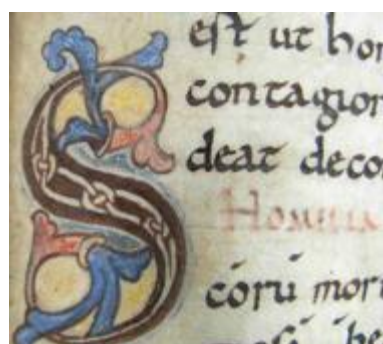 est ut hon
contagion
deat deco
Homilia
S
coru mori